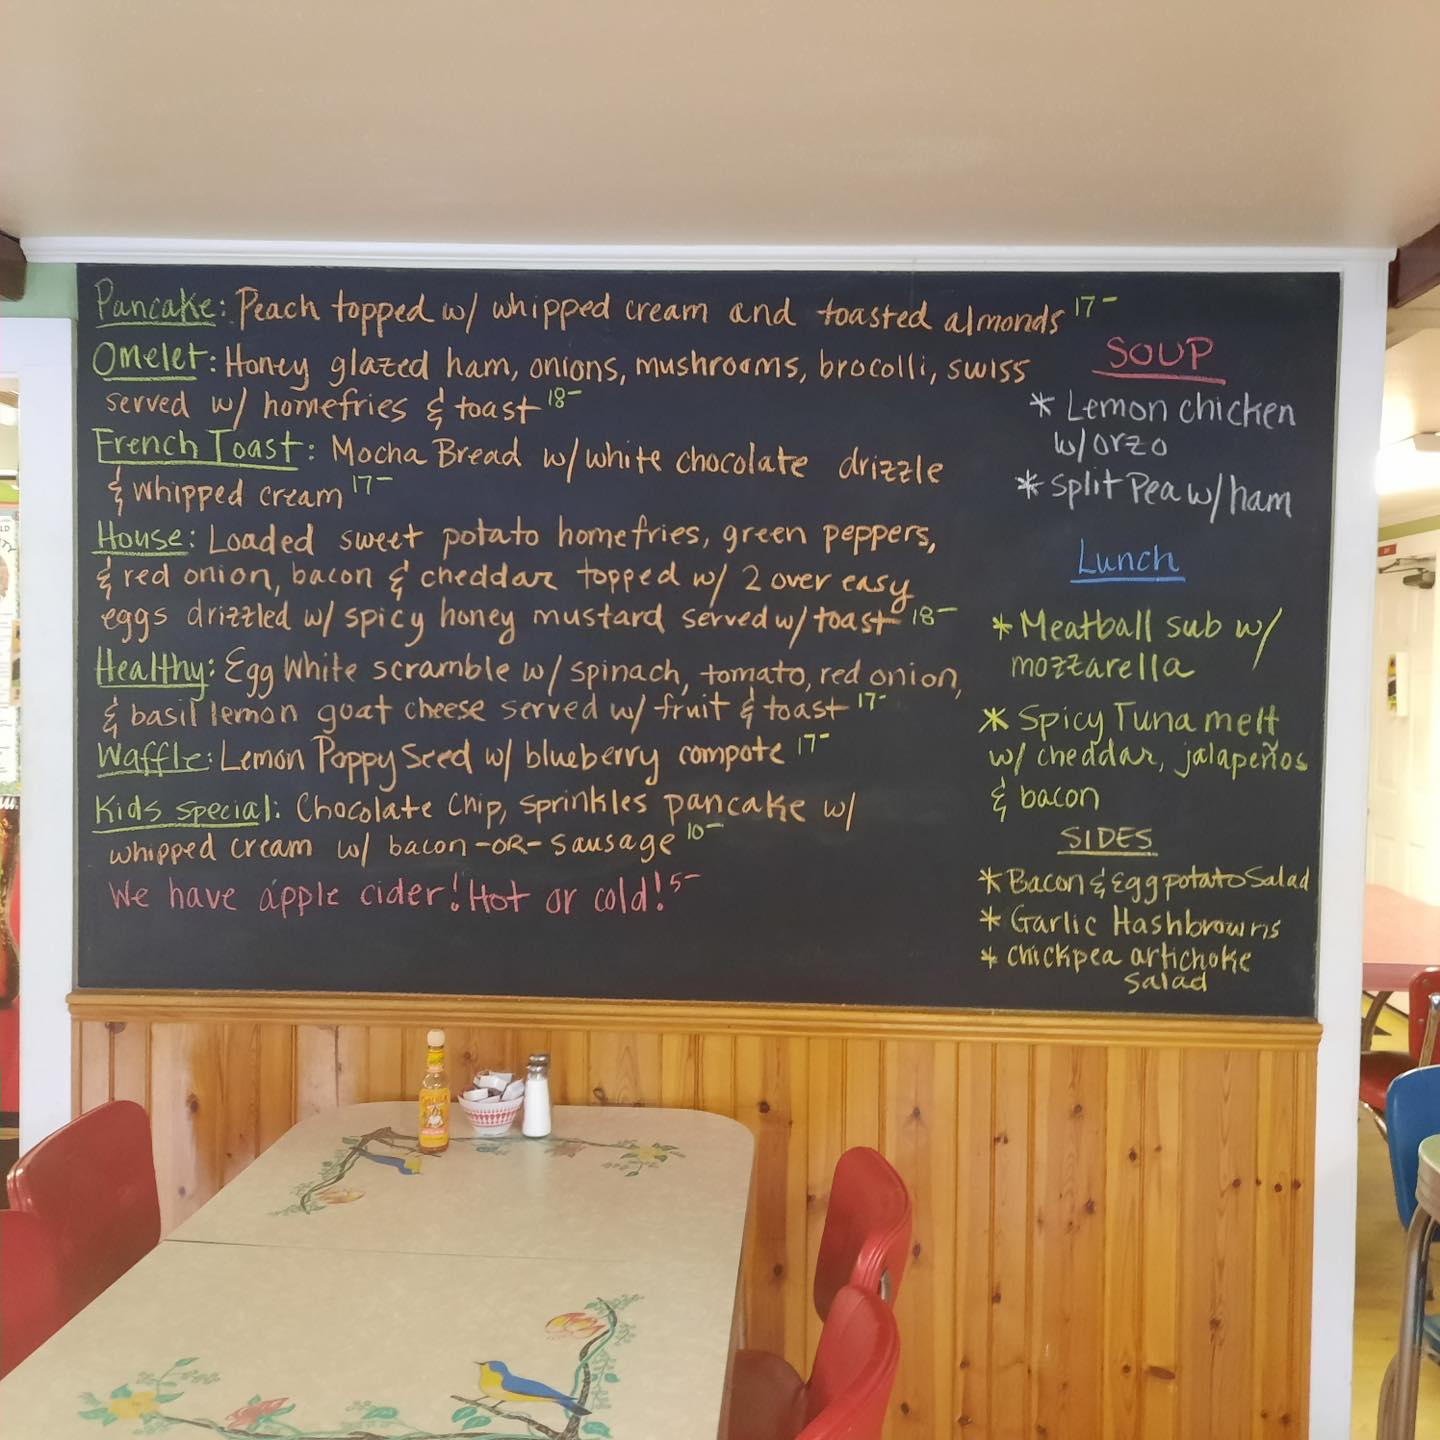 Pancake: Peach topped w/ whipped cream and toasted almonds 17-
Omelet: Honey glazed ham, onions, mushrooms, brocolli, swiss
served w/ homefries & toast 18-
French Toast: Mocha Bread w/ white chocolate drizzle
& whipped cream 17-
House: Loaded sweet potato homefries, green peppers,
& red onion, bacon & cheddar topped w/ 2 over easy
eggs drizzled w/ spicy honey mustard served w/ toast 18-
Healthy: Egg White scramble w/ spinach, tomato, red onion,
& basil lemon goat cheese served w/ fruit & toast 17-
Waffle: Lemon Poppy Seed w/ blueberry compote 17-
Kids Special: Chocolate Chip, sprinkles pancake w/
whipped cream w/ bacon -OR- sausage 10-
We have apple cider! Hot or cold! 5-
SOUP
* Lemon chicken
w/ orzo
* Split Pea w/ ham
Lunch
* Meatball sub w/
mozzarella
* Spicy Tuna melt
w/ cheddar, jalapeños
& bacon
SIDES
* Bacon & Egg potato Salad
* Garlic Hashbrowns
* chickpea artichoke
salad